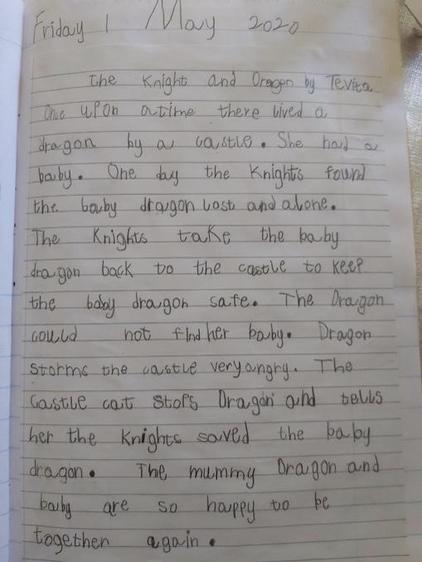 Friday 1 May 2020
the Knight and Dragon by Tevita
Once upon a time there lived a
dragon by a castle. She had a
baby. One day the Knights found
the baby dragon lost and alone.
The Knights take the baby
dragon back to the castle to keep
the baby dragon safe. The Dragon
could not find her baby. Dragon
storms the castle very angry. The
Castle cat stops Dragon and tells
her the Knights saved the baby
dragon. The mummy Dragon and
baby are so happy to be
together again.